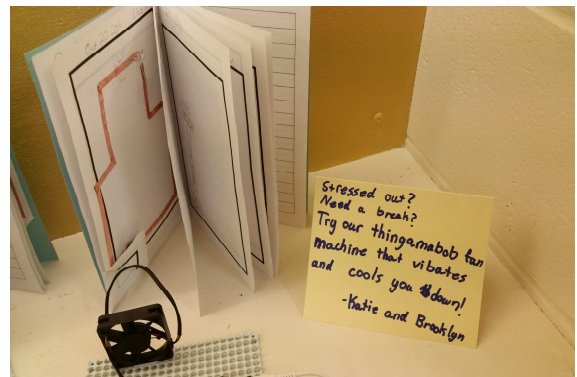 Stressed out?
Need a break?
Try our thingamabob fan
machine that vibates
and cools you down!
-Katie and Brooklyn